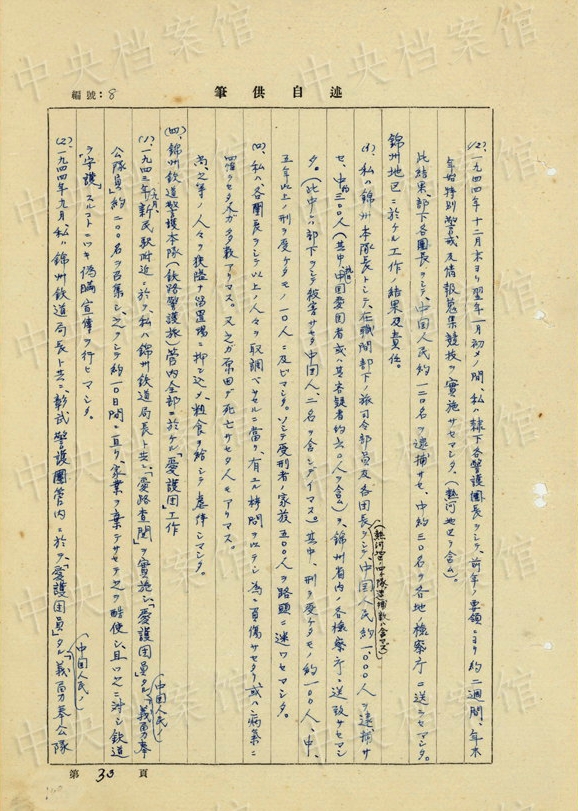 編號：8
述自供筆
(2)、一九四四年十二月末ヨリ翌年一月初メノ間、私ハ隷下各警護團長ヲシテ、前年ノ要領ニヨリ約二週間、年末
年始特別警戒及情報蒐集競技ヲ實施サセマシタ。(熱河地区ヲ含ム)。
此結果部下各團長ヲシテ、中国人民約一二〇名ヲ逮捕サセ、中約三〇名ヲ各地ノ檢察庁ニ送ラセマシタ。
錦州地区ニ於ケル工作ノ結果及責任。
(1)、私ハ錦州本隊長トシテ、在職間部下ノ旅司令部員及各団長ヲシテ、中国人民約一、〇〇〇人ヲ逮捕サ
(熱河警護本隊逮捕数ハ含マズ)
セ、中約三〇〇人(其中、中国愛国者或ハ其容疑者約六〇人ヲ含ム)ヲ、錦州省内ノ各檢察庁ニ送致サセマシ
タ。(此中ニハ部下ヲシテ殺害サセタ中国人二名ヲ含ンデイマス)。其中、刑ヲ受ケタモノ約一〇〇人、中、
五年以上ノ刑ヲ受ケタモノ一〇人ニ及ビマシタ。ソシテ受刑者ノ家族五〇〇人ヲ路頭ニ迷ワセマシタ。
(2)、私ハ各團長ヲシテ以上ノ人々ヲ取調ベサセルニ当リ、有ユル拷問ヲ以テシ為ニ負傷サセタリ或ハ病気ニ
四惱ラセタ人ガ多数アリマス。又之ガ原因デ死亡サセタ人モアリマス。
尚之等ノ人々ヲ狭隘ナ留置場ニ押シ込メ、粗食ヲ給シテ虐待シマシタ。
(四)、錦州鉄道警護本隊(鉄路警護旅)管内全部ニ於ケル「愛護団」工作
(1)、一九四三年六月、新民駅附近ニ於テ、私ハ錦州鉄道局長ト共ニ、「愛路査閲」ヲ實施シ、「愛護団員」タル「義勇奉
(中国人民ノ)
公隊員」約二〇〇名ヲ召集シ、之ヲシテ約一〇日間ニ亘リ、家業ヲ棄テサセテ之ヲ酷使シ且ツ之ニ対シ鉄道
ヲ「守護」スルコトニツキ偽瞞宣傳ヲ行ヒマシタ。
(2)、一九四四年九月、私ハ錦州鉄道局長ト共ニ、彰武警護團管内ニ於テ、「愛護団員」タル「義勇奉公隊
(中国人民ノ)
第 33 頁
中央档案馆